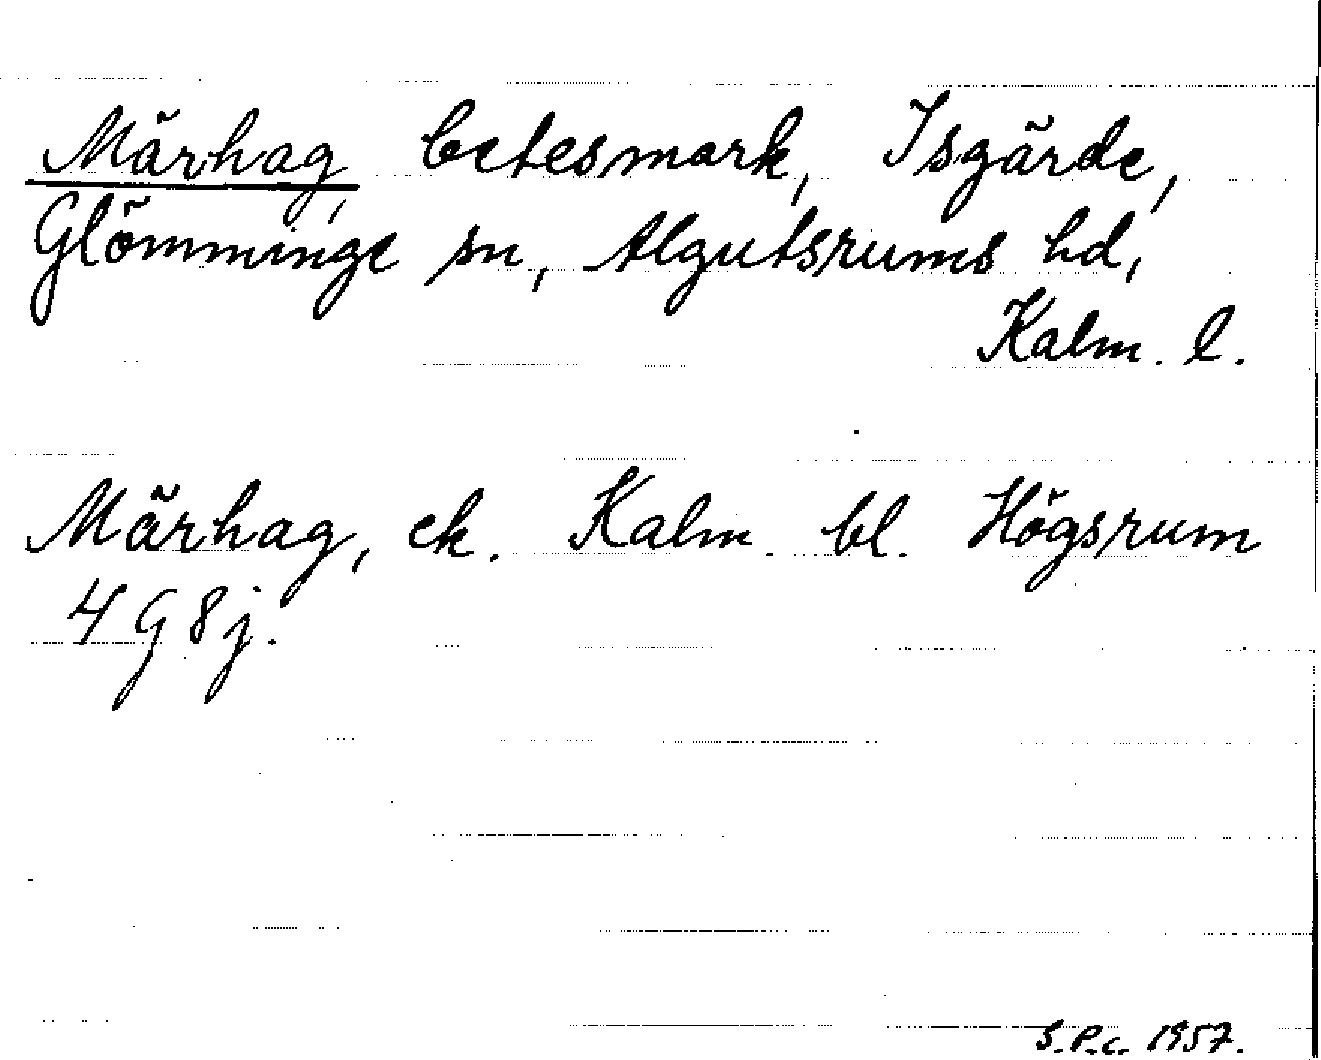 Märhag, betesmark, Isgärde,
Glömminge sn, Algutsrums hd,
Kalm. l.
Märhag, ek. Kalm. bl. Högsrum
4 G 8 j.
S.P.c. 1957.